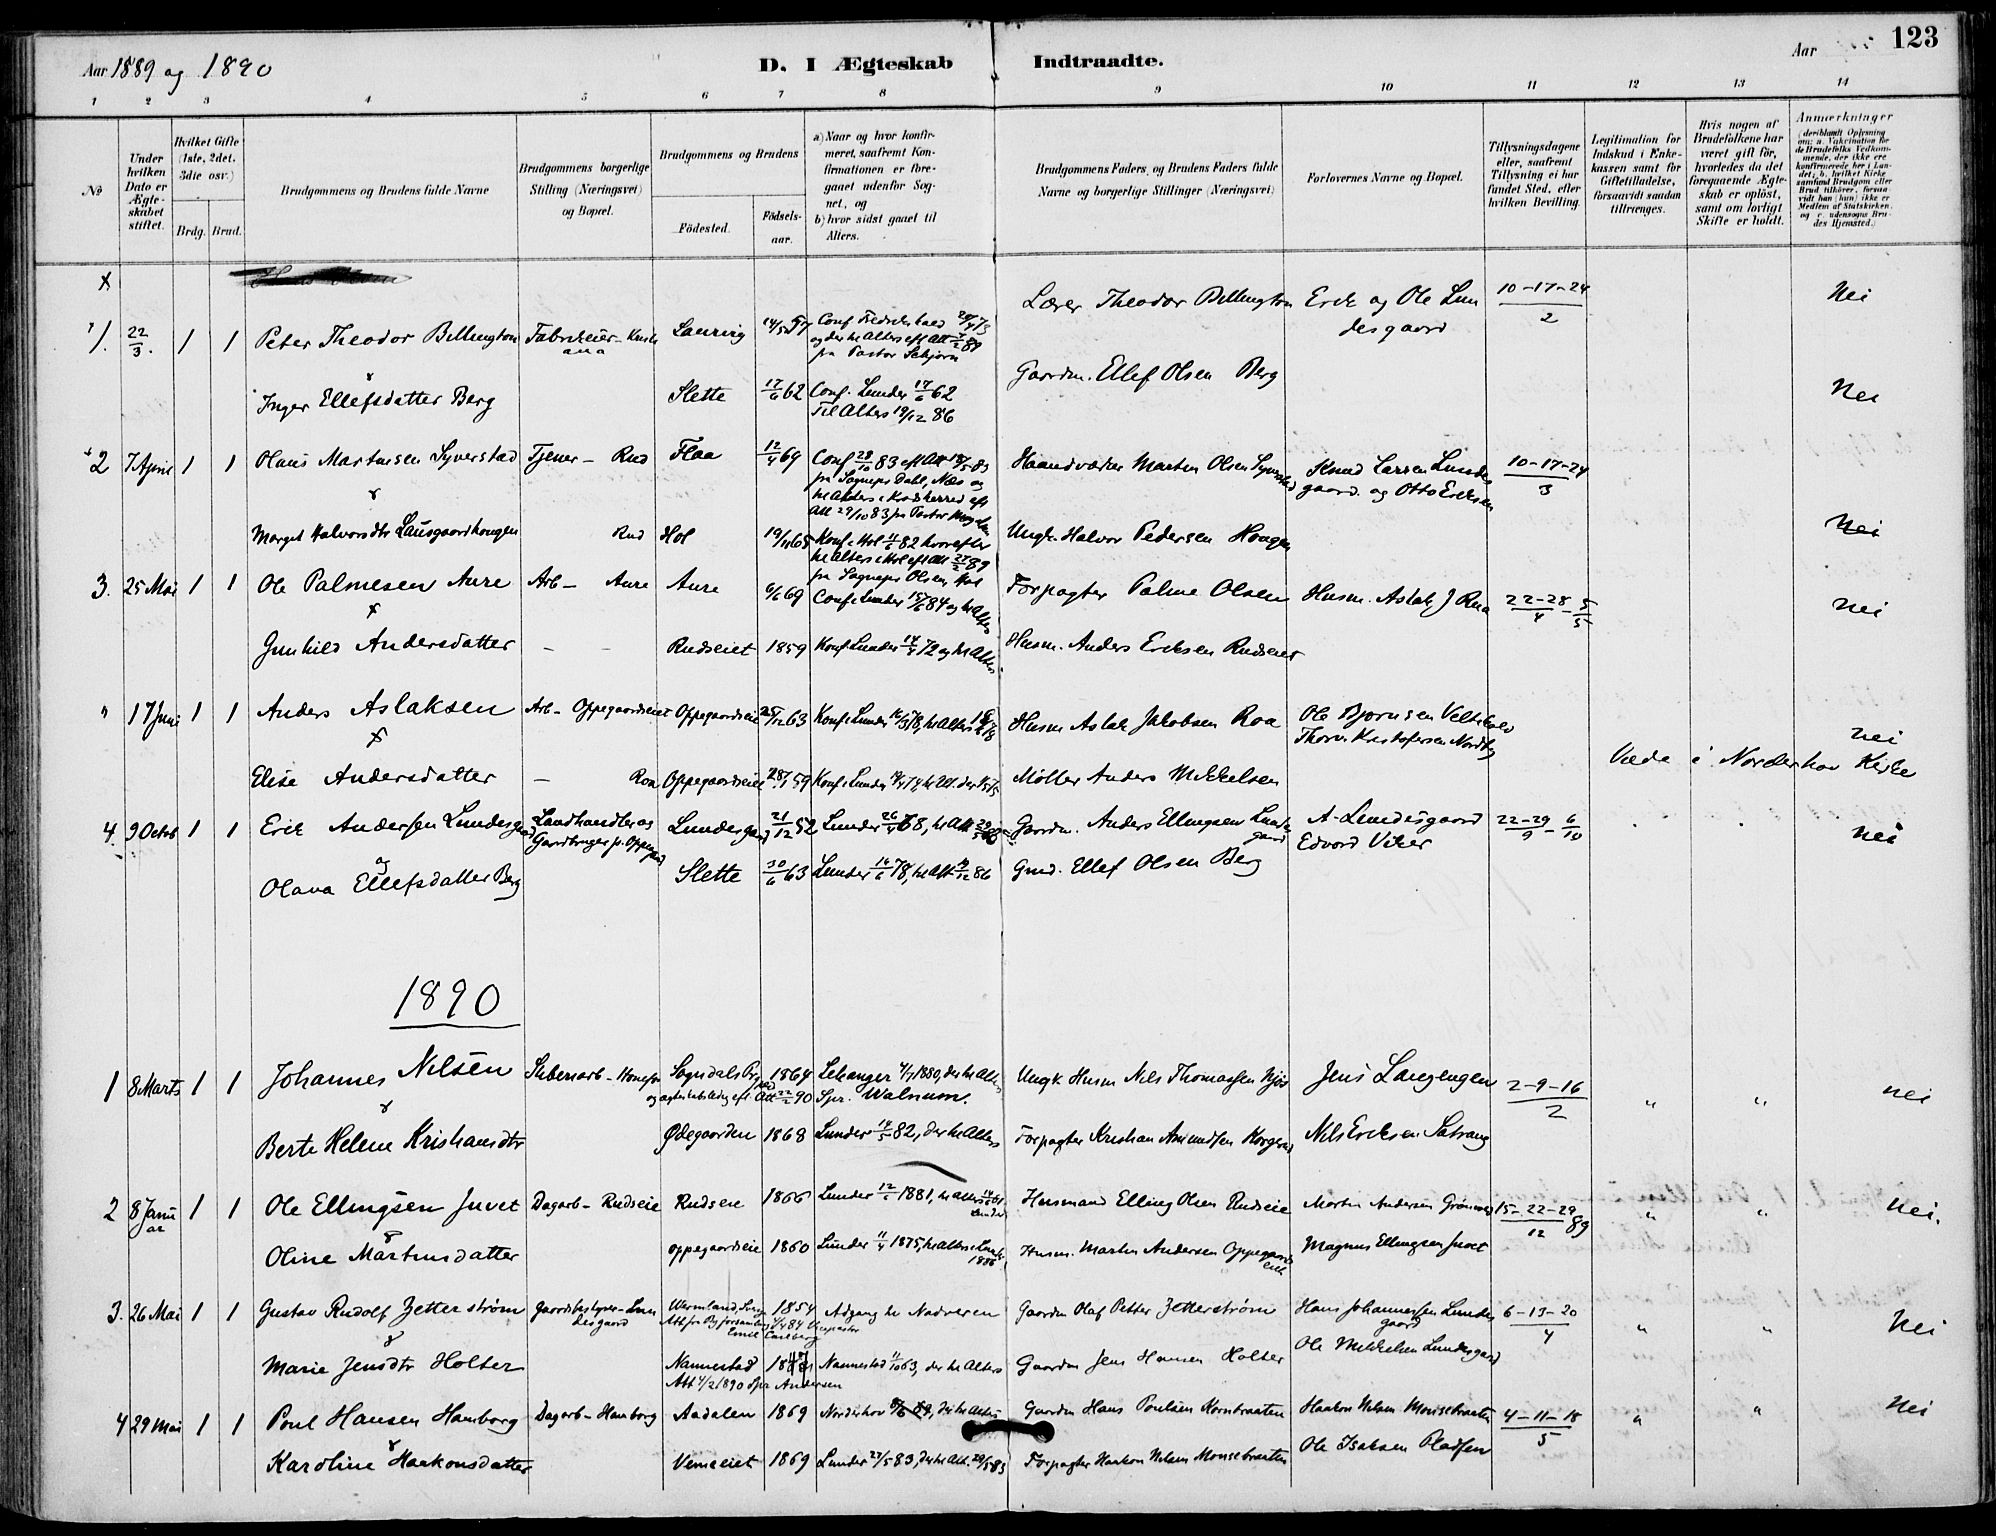 Aar 1889 og 1890
D. I Ægteskab Indtraadte.
Aar
123
1 2 3 4 5 6 7 8 9 10 11 12 13 14
No
Under hvilken Dato er Ægteskabet stiftet.
Hvilket Gifte (1ste, 2det. 3die osv.)
Brdg. Brud.
Brudgommens og Brudens fulde Navne
Brudgommens borgerlige Stilling (Næringsvei) og Bopæl.
Brudgommens og Brudens
Födested.
Födselsaar.
a) Naar og hvor konfirmeret, saafremt Konfirmationen er foregaaet udenfor Sognet, og
b) hvor sidst gaaet til Alters.
Brudgommens Faders, og Brudens Faders fulde Navne og borgerlige Stillinger (Næringsvei)
Forlovernes Navne og Bopæl.
Tillysningsdagene eller, saafremt Tillysning ei har fundet Sted, efter hvilken Bevilling.
Legitimation for Indskud i Enkekassen samt for Giftetilladelse, forsaavidt saadan tiltrænges.
Hvis nogen af Brudefolkene har været gift för, hvorledes da det foregaaende Ægteskab er oplöst, samt om lovligt Skifte er holdt.
Anmærkninger
(deriblandt Oplysning om: a. Vakcination for de Brudefolks Vedkommende, der ikke ere konfirmerede her i Landet; b. hvilket Kirkesamfund Brudgom eller Brud tilhörer, forsaavidt han (hun) ikke er Medlem af Statskirken, og c. udensogns Brudes Hjemsted.)
1. 22/3. 1 1 Peter Theodor Bellington Fabrikeier - Kristiania Laurvig 14/5 57 Conf Fredrikshald 28/4 73 og der til Alters efl Att 7/2 89 fra Pastor Schjørn Lærer Theodor Bellington Erik og Ole Lundesgaard 10-17-24/2 Nei
&
Inger Ellefsdatter Berg Slette 17/6 62 Conf. Lunder 17/6 62 Til Alters 19/12 86 Gaardm. Ellef Olsen Berg Nei
2 7 April 1 1 Olaus Martinsen Syverstad Tjener - Rud Flaa 12/4 69 Conf 28/10 83 efl Att 18/5 83 fra Sogneps Dahl, Næs og til Alters i Krødsherred efl Att 29/10 83 fra Pastor Haandværker Martin Olsen Syverstad Knud Larsen Lundesgaard. og Otto Eriksen 10-17-24/3
&
Margit Halvorsdtr Lausgaardhougen Rud Hol 19/11 65 Konf. i Hol 11/6 82 hvorefter til Alters i Hol efl Att 27/2 89 fra Sogneps Olsen, Hol Ungk. Halvor Pedersen Hougen Nei
3. 25 Mai 1 1 Ole Palmesen Aure Arb - Aure Aure 6/6 69 Conf. Lunder 15/6 84 og til Alters Forpagter Palme Olsen Husm. Aslak J Roa 22-28/4-5/5 nei
&
Gunhild Andersdatter - - Rudseiet 1859 Konf Lunder 14/4 72 og til Alters. Husm. Anders Eriksen Rudseiet
" 17 Juni 1 1 Anders Aslaksen Arb - Oppegaardseiet Oppegaardseie 25/12 63 Konf. Lunder 16/3 78, til Alters Husm Aslak Jakobsen Roa Ole Bjørnsen Veltekold
Thorv. Kristofersen Nordby nei
Viede i Norderhov Kirke
&
Elise Andersdatter - Roa Oppegaardseie 28/1 59 Konf. Lunder Møller Anders Mikkelsen
4. 9 Octob 1 1 Erik Andersen Lundesgaard Landhandler og Gaardbruger Lundesgaard 21/12 52 Lunder 26/4 68, til Att Gaardm. Anders Ellingsen Lundesgaard A. Lundesgaard
Edvard Viker 22-29/9-6/10 nei
og
Olava Ellefsdatter Berg Slette 30/6 63 Lunder 16/6 78, til Att 19/12 86 Gmd. Ellef Olsen Berg
1890
1 8 Marts 1 1 Johannes Nilsen Sliberiarb - Honefos Sogndals Prgj 1864 Lekanger 4/7 1880, der til Alters, og ægteskabsledig efl. Att 22/2 90 Spr. Walnum. Ungk. Husm Nils Thomassen Njøs Jens Langengen 2-9-16/2 " " nei
&
Berte Helene Kristiansdtr Ødegaarden 1868 Lunder 14/5 82, der til Alters Forpagter Kristian Amundsen Korgerud Nils Eriksen Satrang
2 8 Januar 1 1 Ole Ellingsen Juvet Dagarb - Rudseie Rudseie 1866 Lunder 12/6 1881, til Alters Lunder Husmand Elling Olsen Rudseie Martin Andersen Grønvold 15-22-29/12 89 " " Nei.
&
Oline Martinsdatter Oppegaardseie 1860 Lunder 11/4 1875, til Alters i Lunder 1886 Husm. Martin Andersen Oppegaardseie Magnus Ellingsen Juvet
3. 26 Mai 1 1 Gustav Rudolf Zetterstrøm Gaardsbestyrer - Lundesgaard Wermland, 1854 Adgang til Nadveren Gaardm Olaf Petter Zetterstrøm Hans Johannessen Lundesgaard 6-13-20/4 " " Nei
Emil Carlberg
&
Marie Jensdtr Holter Nannestad Nannestad 11/10 63, der til Alters Gaardm Jens Hansen Holter Ole Mikkelsen Lundesgaard
Att 4/2 1890 Spr Andersen
4 29 Mai 1 1 Poul Hansen Hamborg Dagarb - Hamborg Aadalen 1869 Norderhov der til Alters Gaardm Hans Poulsen Kornbraaten Haakon Nilsen Mousebraaten 4-11-18/5 " " Nei
&
Karoline Haakonsdatter Vemeeiet 1869 Lunder 27/5 83, der til Alt. Forpagter Haakon Nilsen Mousebraaten Ole Isaksen Pladsen